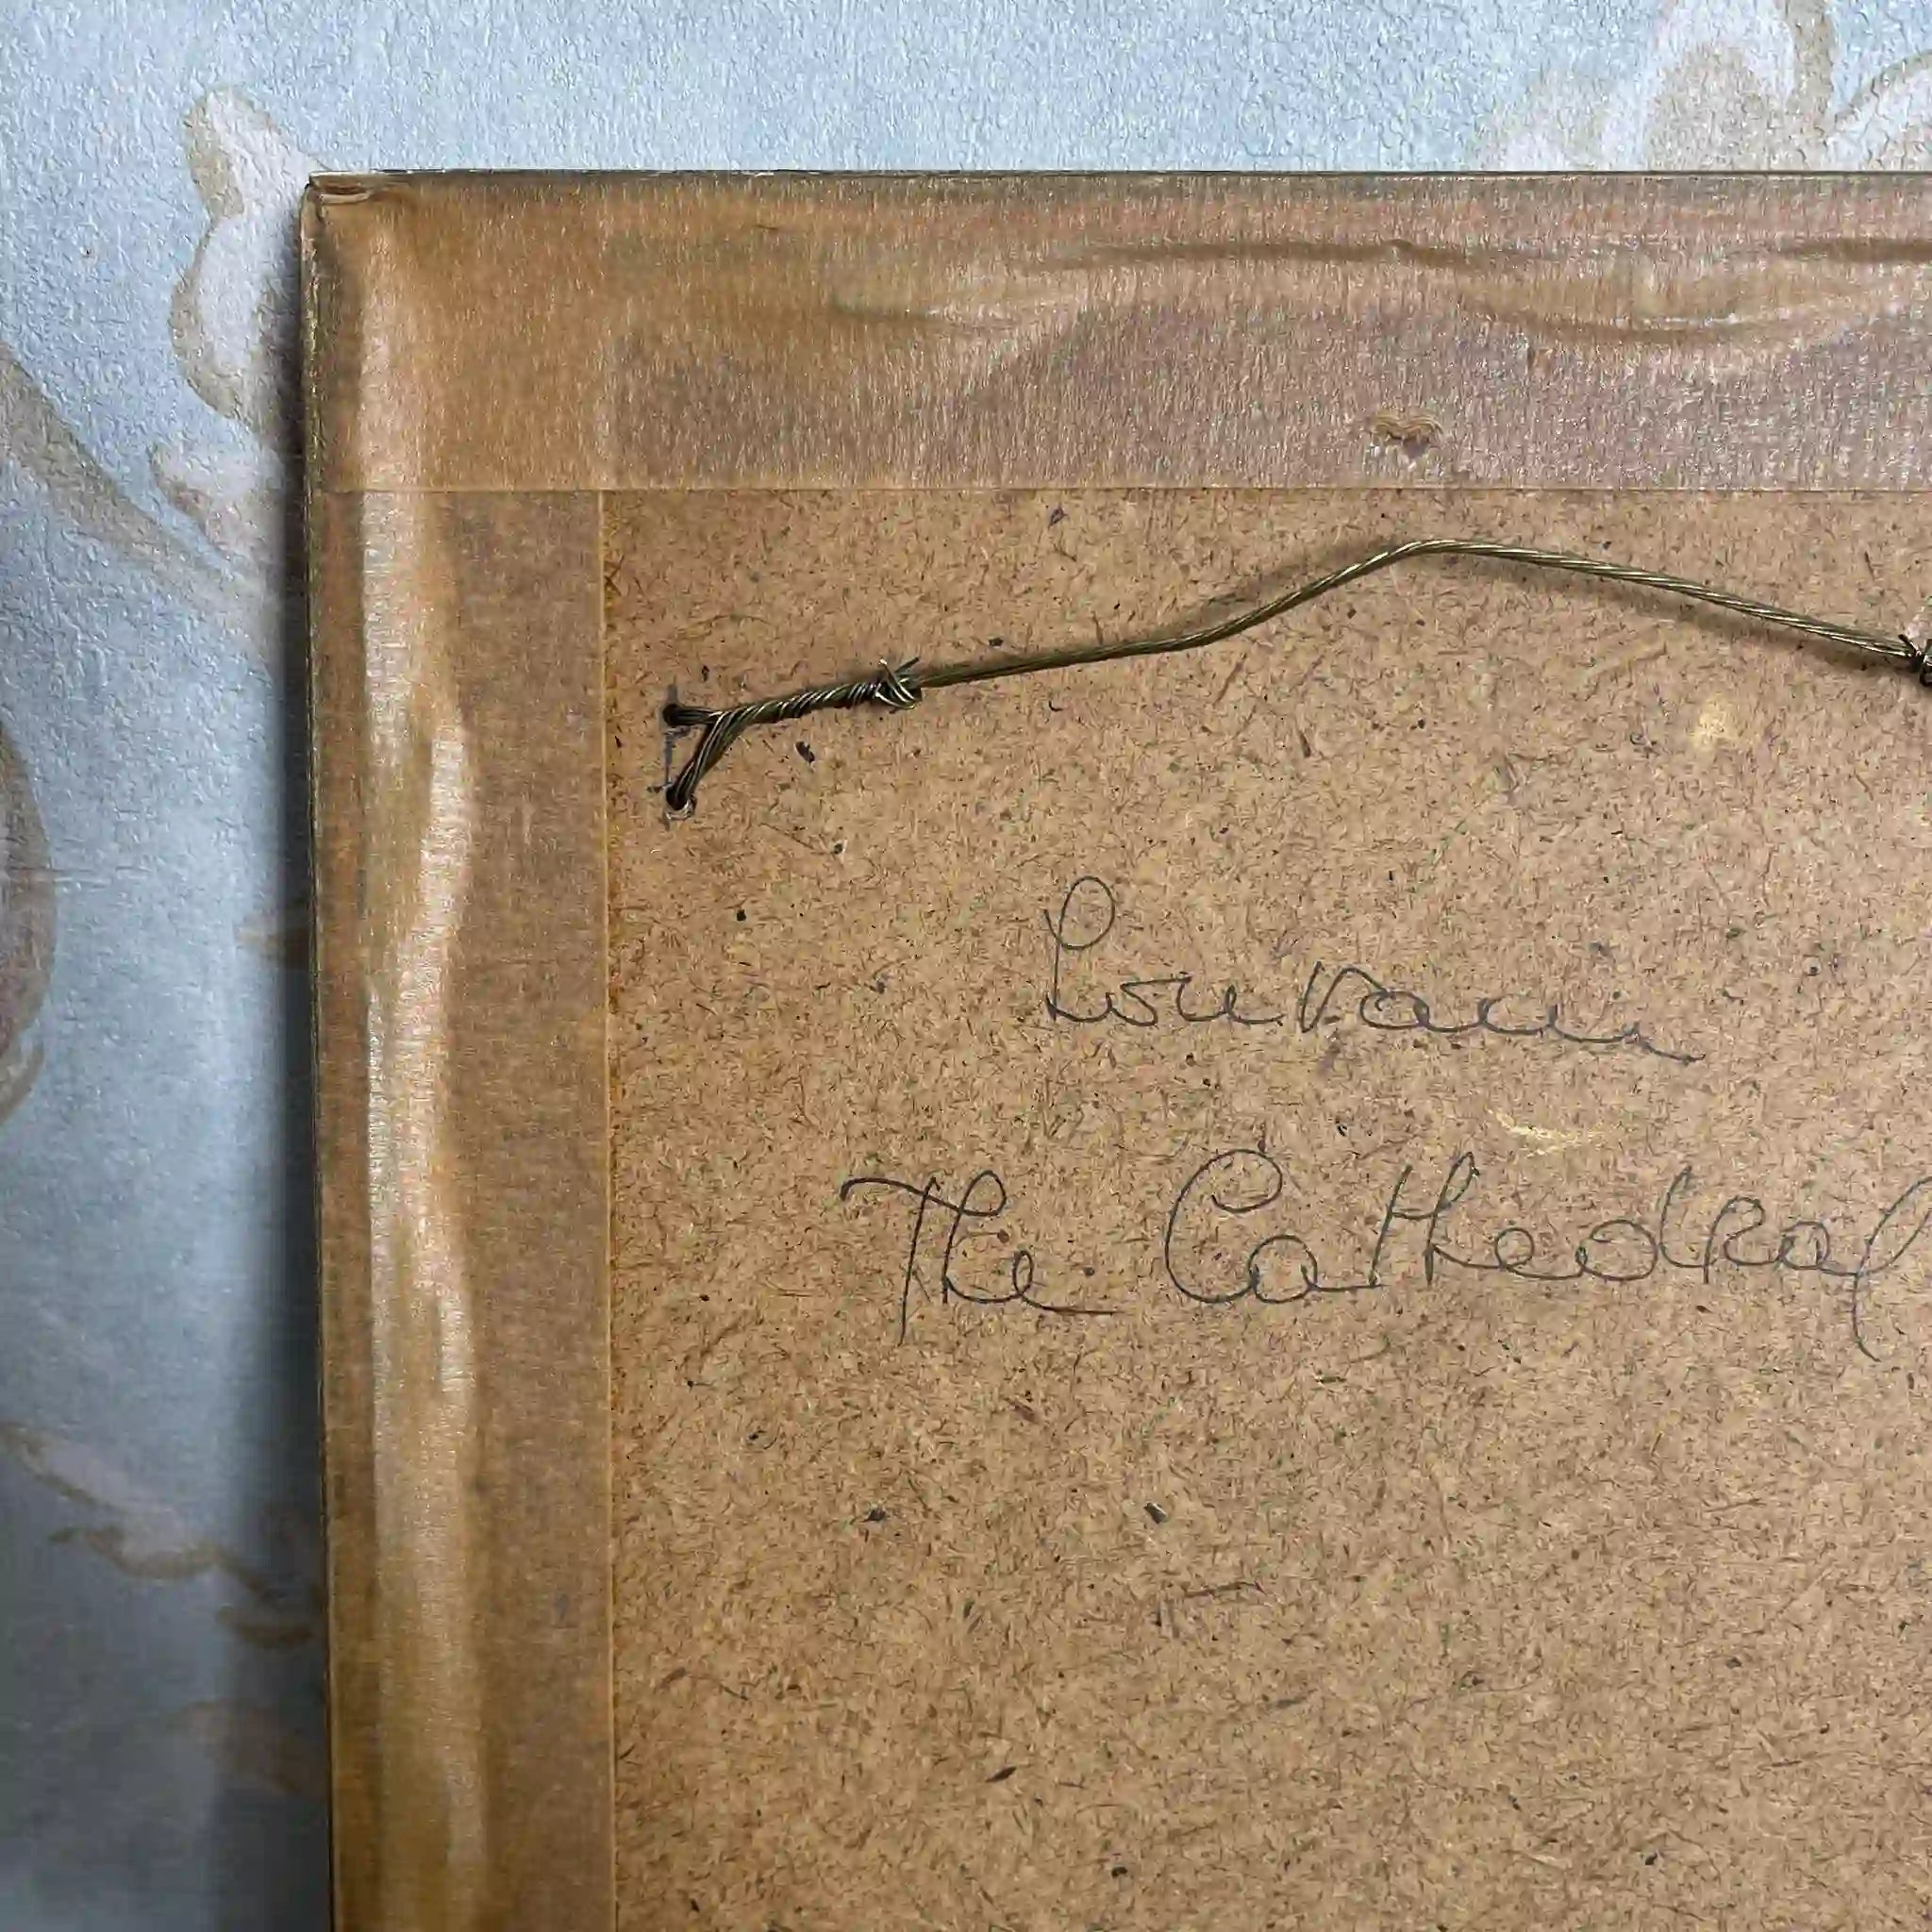 Louvain
The Cathedral